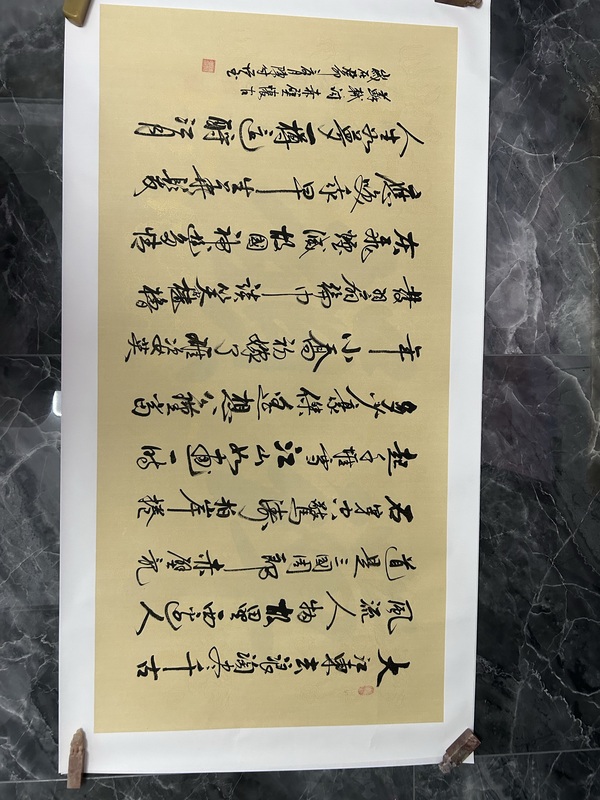 大江東去浪淘盡千古
風流人物故壘西邊人
道是三國周郎赤壁亂
石穿空驚濤拍岸捲
起千堆雪江山如畫一時
多少豪傑遙想公瑾當
年小喬初嫁了雄姿英
發羽扇綸巾談笑檣櫓
灰飛煙滅故國神遊多情
應笑我早生華髮
人生如夢一樽還酹江月
蘇軾詞赤壁懷古